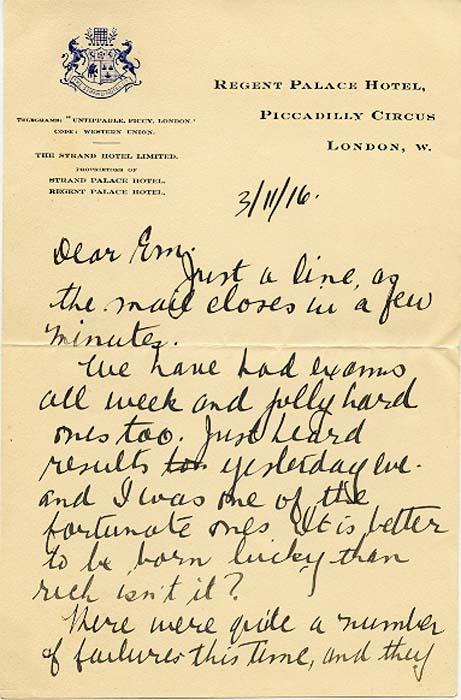 REGENT PALACE HOTEL,
PICCADILLY CIRCUS
LONDON, W.
TELEGRAMS: "UNTIPPABLE, PICCY, LONDON."
CODE: WESTERN UNION.
THE STRAND HOTEL LIMITED.
PROPRIETORS OF
STRAND PALACE HOTEL.
REGENT PALACE HOTEL.
3/11/16.
Dear Em.
Just a line, as
the mail closes in a few
minutes.
We have had exams
all week and jolly hard
ones too. Just heard
results yesterday eve.
and I was one of the
fortunate ones. It is better
to be born lucky than
rich isn't it?
There were quite a number
of failures this time, and they